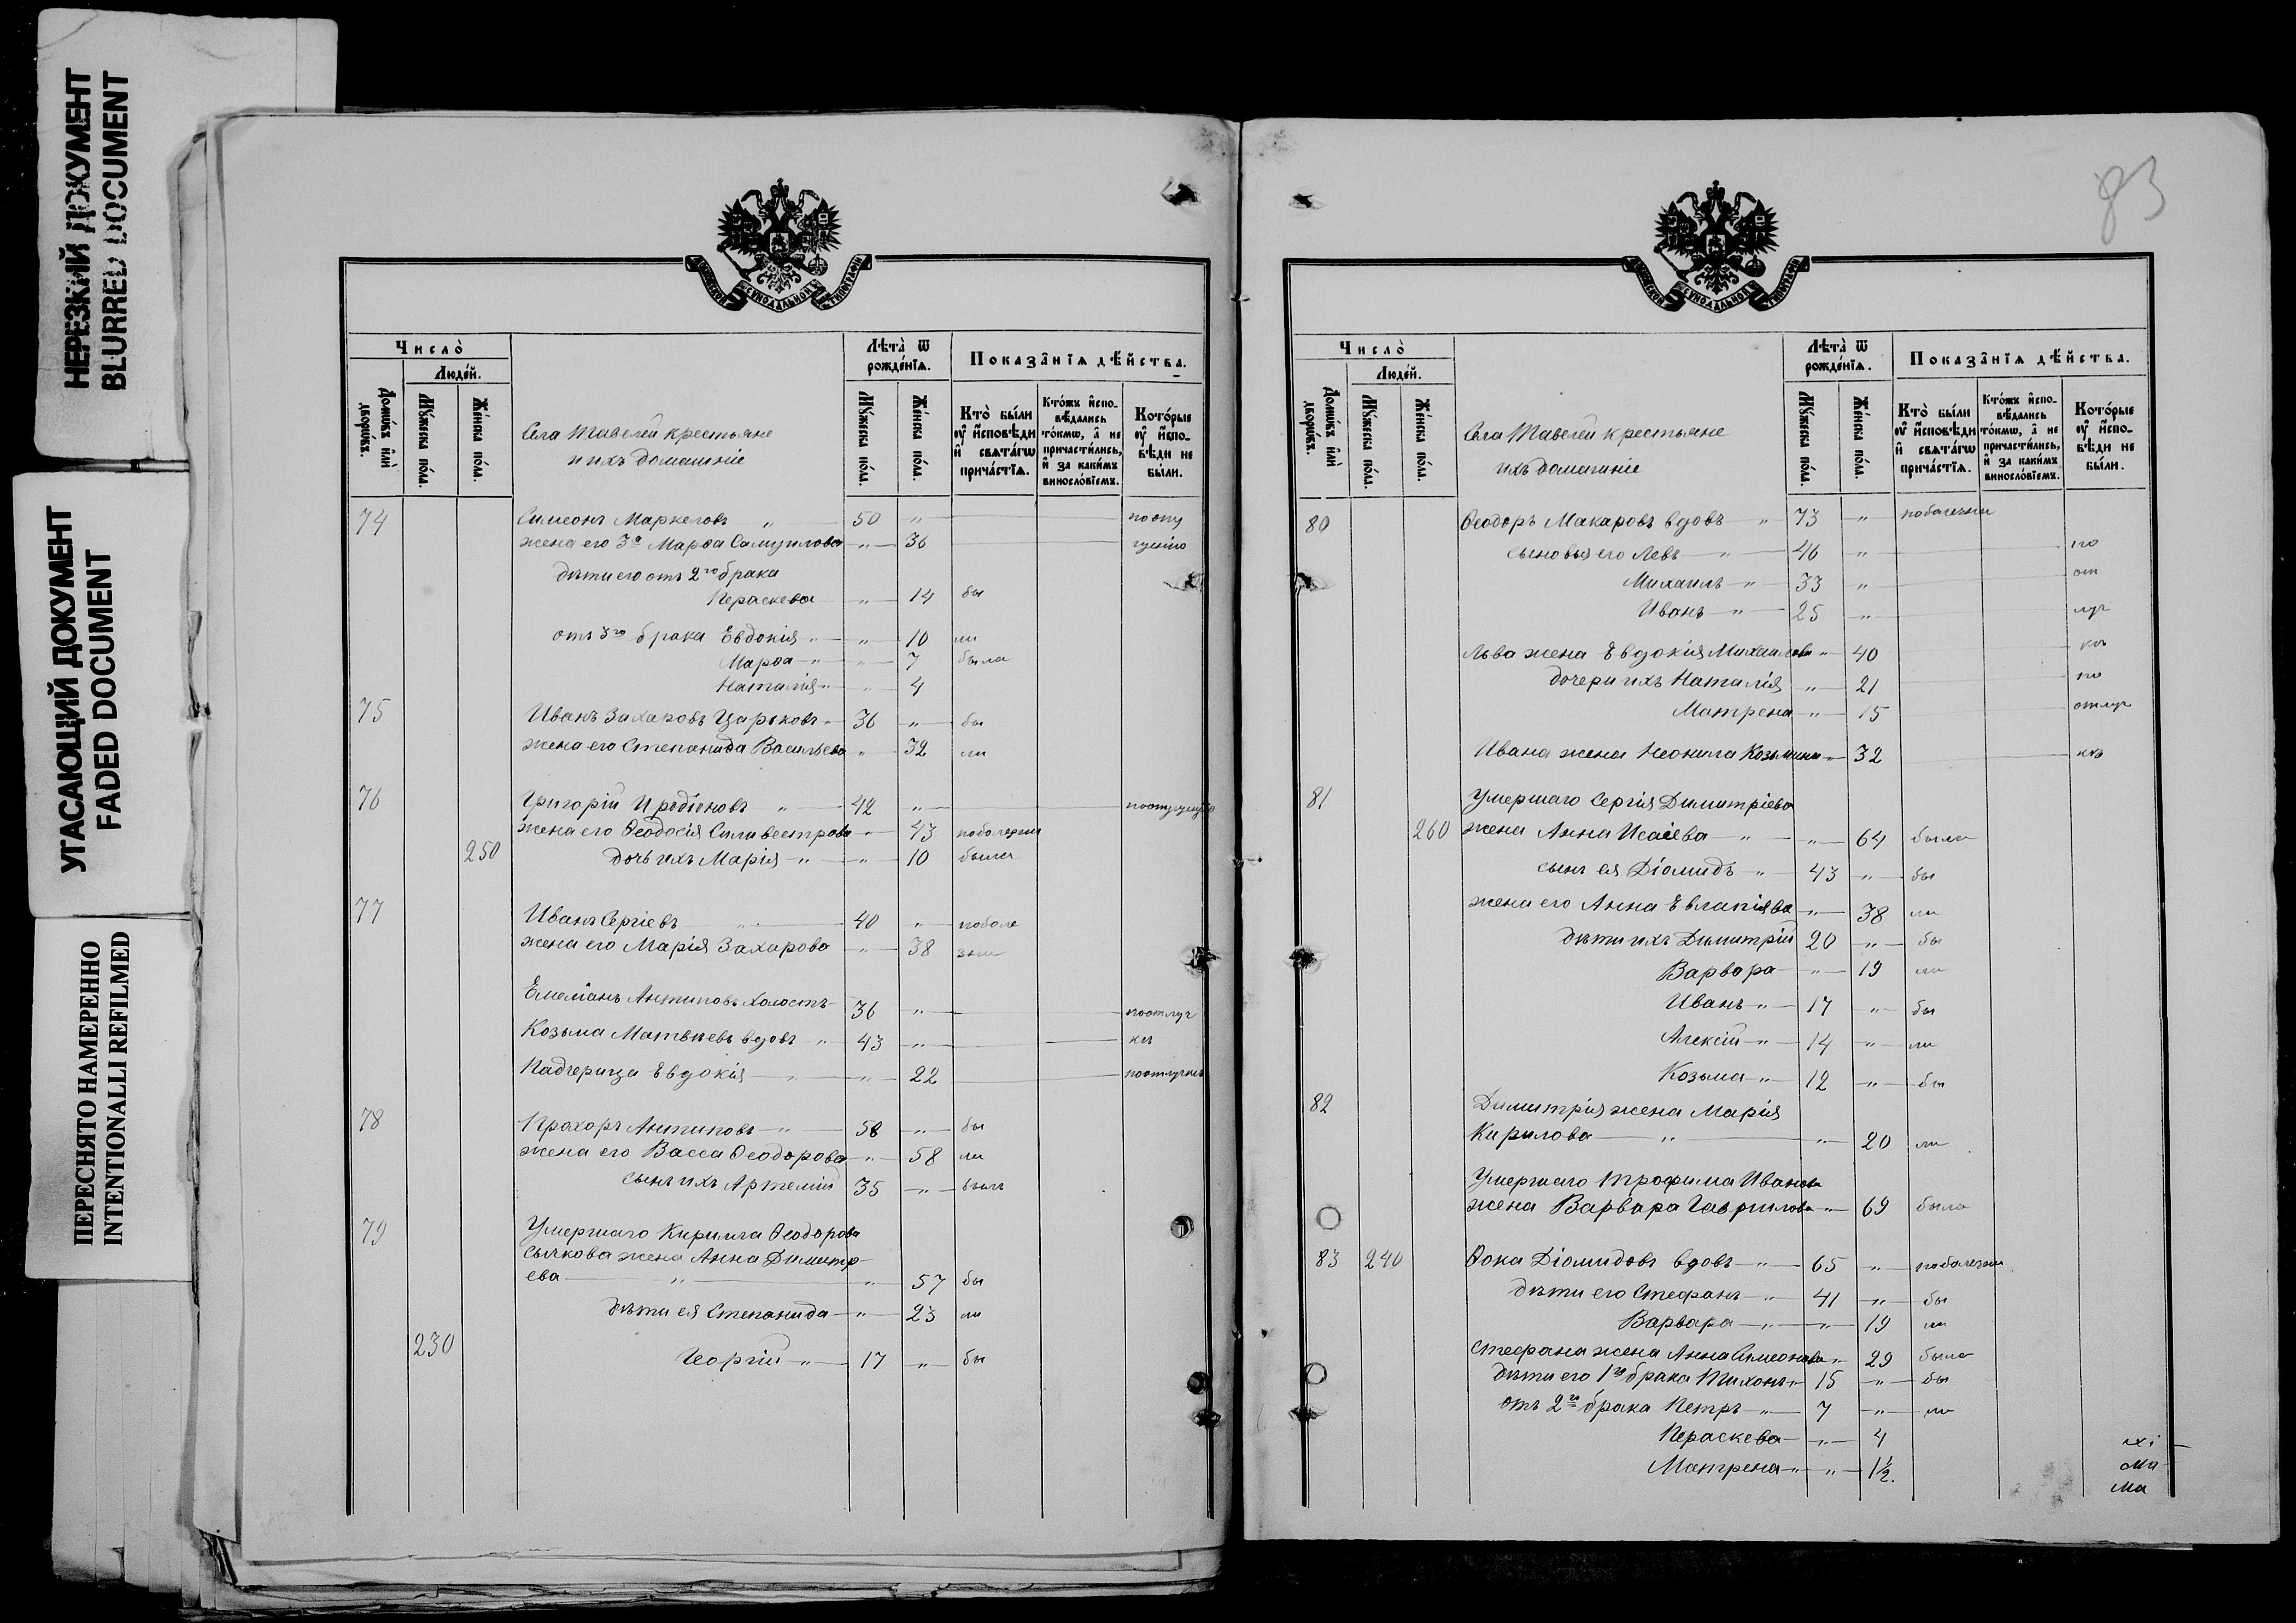 НЕРЕЗКИЙ ДОКУМЕНТ
BLURRED DOCUMENT
УГАСАЮЩИЙ ДОКУМЕНТ
FADED DOCUMENT
ПЕРЕСНЯТО НАМЕРЕННО
INTENTIONALLI REFILMED
Число̀
Домѡ́въ и҆лѝ дворѡ́въ.
Люде́й.
Мꙋ́жеска по́ла.
Же́нска по́ла.
Села Тавелей крестьяне
и ихъ домашніе
Лѣта̀ ѿ рожде́нїѧ.
Мꙋ́жеска по́ла.
Же́нска по́ла.
Показа̑нїѧ дѣ́йства.
Кто̀ бы́ли ᲂу҆ и҆сповѣ́ди и҆ свѧта́гѡ прича́стїѧ.
Кто́жъ и҆спо-
вѣ́дались
то́кмѡ, а҆ не
причасти́лись,
и҆ за каки́мъ
виносло́вїемъ.
Кото́рые ᲂу҆ и҆спо-
вѣ́ди не
бы́ли.
74 Симеонъ Маркеловъ " 50 " по опу
жена его 3я Марѳа Самуилова " 36 щенію
дѣти его отъ 2го брака
Параскева " 14 бы
отъ 3го брака Евдокія " " 10 ли
Марѳа " " 7 была
Наталія " " 4
75 Иванъ Захаровъ Царьковъ " 36 " бы
жена его Степанида Васильева " 32 ли
76 Григорій Иродіоновъ " 42 "
жена его Ѳеодосія Силивестрова " 43 по болезни
250 дочь ихъ Марія " " 10 была
77 Иванъ Сергіевъ " 40 " по боле
жена его Марія Захарова " 38 зни
Емеліанъ Антиповъ холостъ 36 " по отлуч
Козьма Матвѣевъ вдовъ " 43 " кѣ
Падчерица Евдокія " " 22 по отлучкѣ
78 Прохоръ Антиповъ " 58 " бы
жена его Васса Ѳеодорова " 58 ли
сынъ ихъ Артемій 35 " былъ
79 Умершаго Кирилла Ѳеодорова
Сычкова жена Анна Димитр
ева " " 57 бы
дѣти ея Степанида " 23 ли
230 Георгій " 17 " бы
83
Число̀
Домѡ́въ и҆лѝ дворѡ́въ.
Люде́й.
Мꙋ́жеска по́ла.
Же́нска по́ла.
Села Тавелей крестьяне
ихъ домашніе
Лѣта̀ ѿ рожде́нїѧ.
Мꙋ́жеска по́ла.
Же́нска по́ла.
Показа̑нїѧ дѣ́йства.
Кто̀ бы́ли ᲂу҆ и҆сповѣ́ди и҆ свѧта́гѡ прича́стїѧ.
Кто́жъ и҆спо-
вѣ́дались
то́кмѡ, а҆ не
причасти́лись,
и҆ за каки́мъ
виносло́вїемъ.
Кото́рые ᲂу҆ и҆спо-
вѣ́ди не
бы́ли.
80 Ѳеодоръ Макаровъ вдовъ " 73 " по болезни
сыновья его Левъ " 46 " по
Михаилъ " 33 " от
Иванъ " 25 " луч
Льва жена Евдокія Михаилова " 40 кѣ
дочери ихъ Наталія " 21 по
Матрена " 15 отлуч
Ивана жена Неонила Козьмина " 32 кѣ
81 Умершаго Сергія Димитріева
260 жена Анна Исаіева " " 64 была
сынъ ея Діомидъ " 43 " бы
жена его Анна Евлапіева " 38 ли
дѣти ихъ Димитрій 20 " бы
Варвара " 19 ли
Иванъ " 17 " бы
Алексій " 14 " ли
Козьма " 12 " бы
82 Димитрія жена Марія
Кирилова " " 20 ли
Умершаго Трофима Иванова
жена Варвара Гаврилова " 69 была
83 240 Ѳока Діомидовъ вдовъ " 65 " по болезни
дѣти его Стефанъ " 41 " бы
Варвара " " 19 ли
Стефана жена Анна Симеонова " 29 была
дѣти его 1го брака Тихонъ " 15 " бы
отъ 2го брака Петръ " 7 " ли
Параскева " 4
Матрена " " 1½.